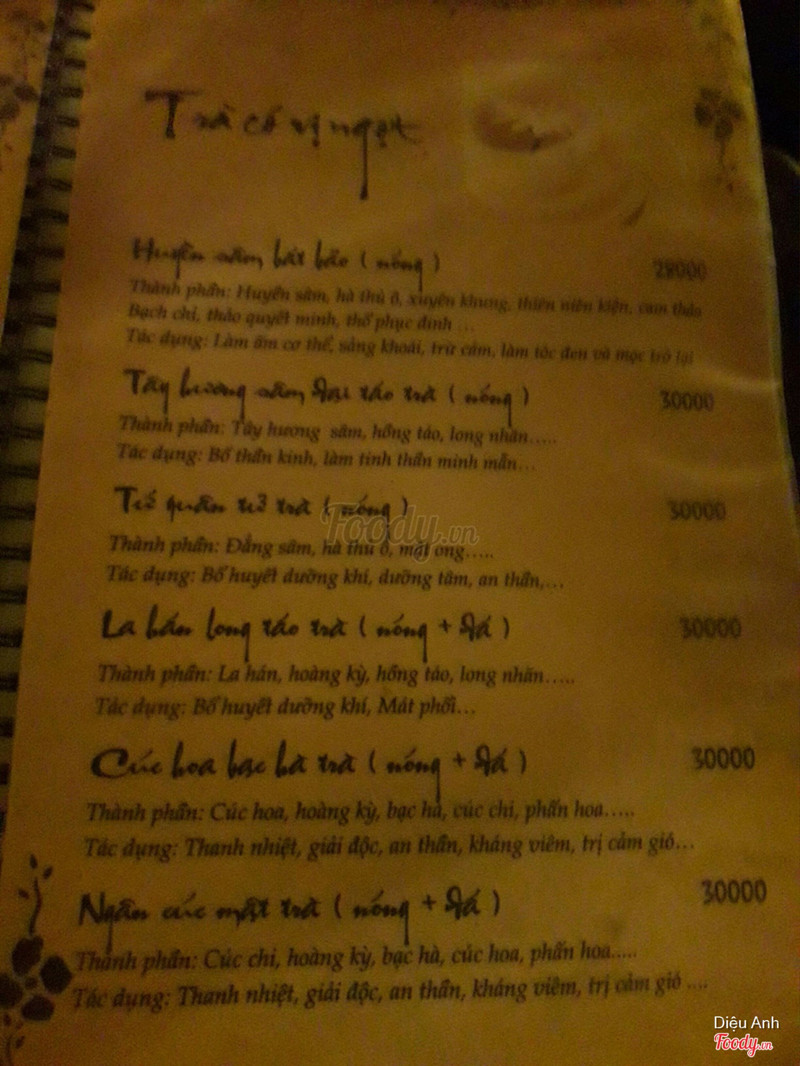 Trà có vị ngọt
Huyền sâm bát bảo ( nóng ) 28000
Thành phần: Huyền sâm, hà thủ ô, xuyên khung, thiên niên kiện, cam thảo
Bạch chỉ, thảo quyết minh, thổ phục đinh ...
Tác dụng: Làm ấm cơ thể, sảng khoái, trừ cảm, làm tóc đen và mọc trở lại
Tây hương sâm đại táo trà ( nóng ) 30000
Thành phần: Tây hương sâm, hồng táo, long nhãn.....
Tác dụng: Bổ thần kinh, làm tinh thần minh mẫn...
Tứ quân tử trà ( nóng ) 30000
Thành phần: Đẳng sâm, hà thủ ô, mật ong.....
Tác dụng: Bổ huyết dưỡng khí, dưỡng tâm, an thần,...
La hán long táo trà ( nóng + đá ) 30000
Thành phần: La hán, hoàng kỳ, hồng táo, long nhãn.....
Tác dụng: Bổ huyết dưỡng khí, Mát phổi...
Cúc hoa bạc hà trà ( nóng + đá ) 30000
Thành phần: Cúc hoa, hoàng kỳ, bạc hà, cúc chi, phấn hoa.....
Tác dụng: Thanh nhiệt, giải độc, an thần, kháng viêm, trị cảm gió...
Ngân cúc mật trà ( nóng + đá ) 30000
Thành phần: Cúc chi, hoàng kỳ, bạc hà, cúc hoa, phấn hoa.....
Tác dụng: Thanh nhiệt, giải độc, an thần, kháng viêm, trị cảm gió ....
Foody.vn
Diệu Anh
Foody.vn